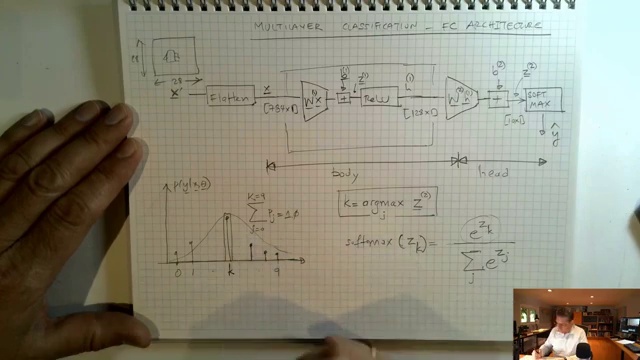 MULTILAYER CLASSIFICATION - FC ARCHITECTURE
28
28
X
Flatten
x
[784x1]
W⁽¹⁾x
b⁽¹⁾
+
z⁽¹⁾
ReLU
h⁽¹⁾
[128x1]
W⁽²⁾h⁽¹⁾
b⁽²⁾
+
z⁽²⁾
[10x1]
SOFT
MAX
ŷ
body
head
p(y|x,θ)
K=9
∑ Pj = 1.0
j=0
0 1 .. k 9
K = argmax z⁽²⁾
j
softmax (Zk) = e^Zk
∑ e^Zj
j